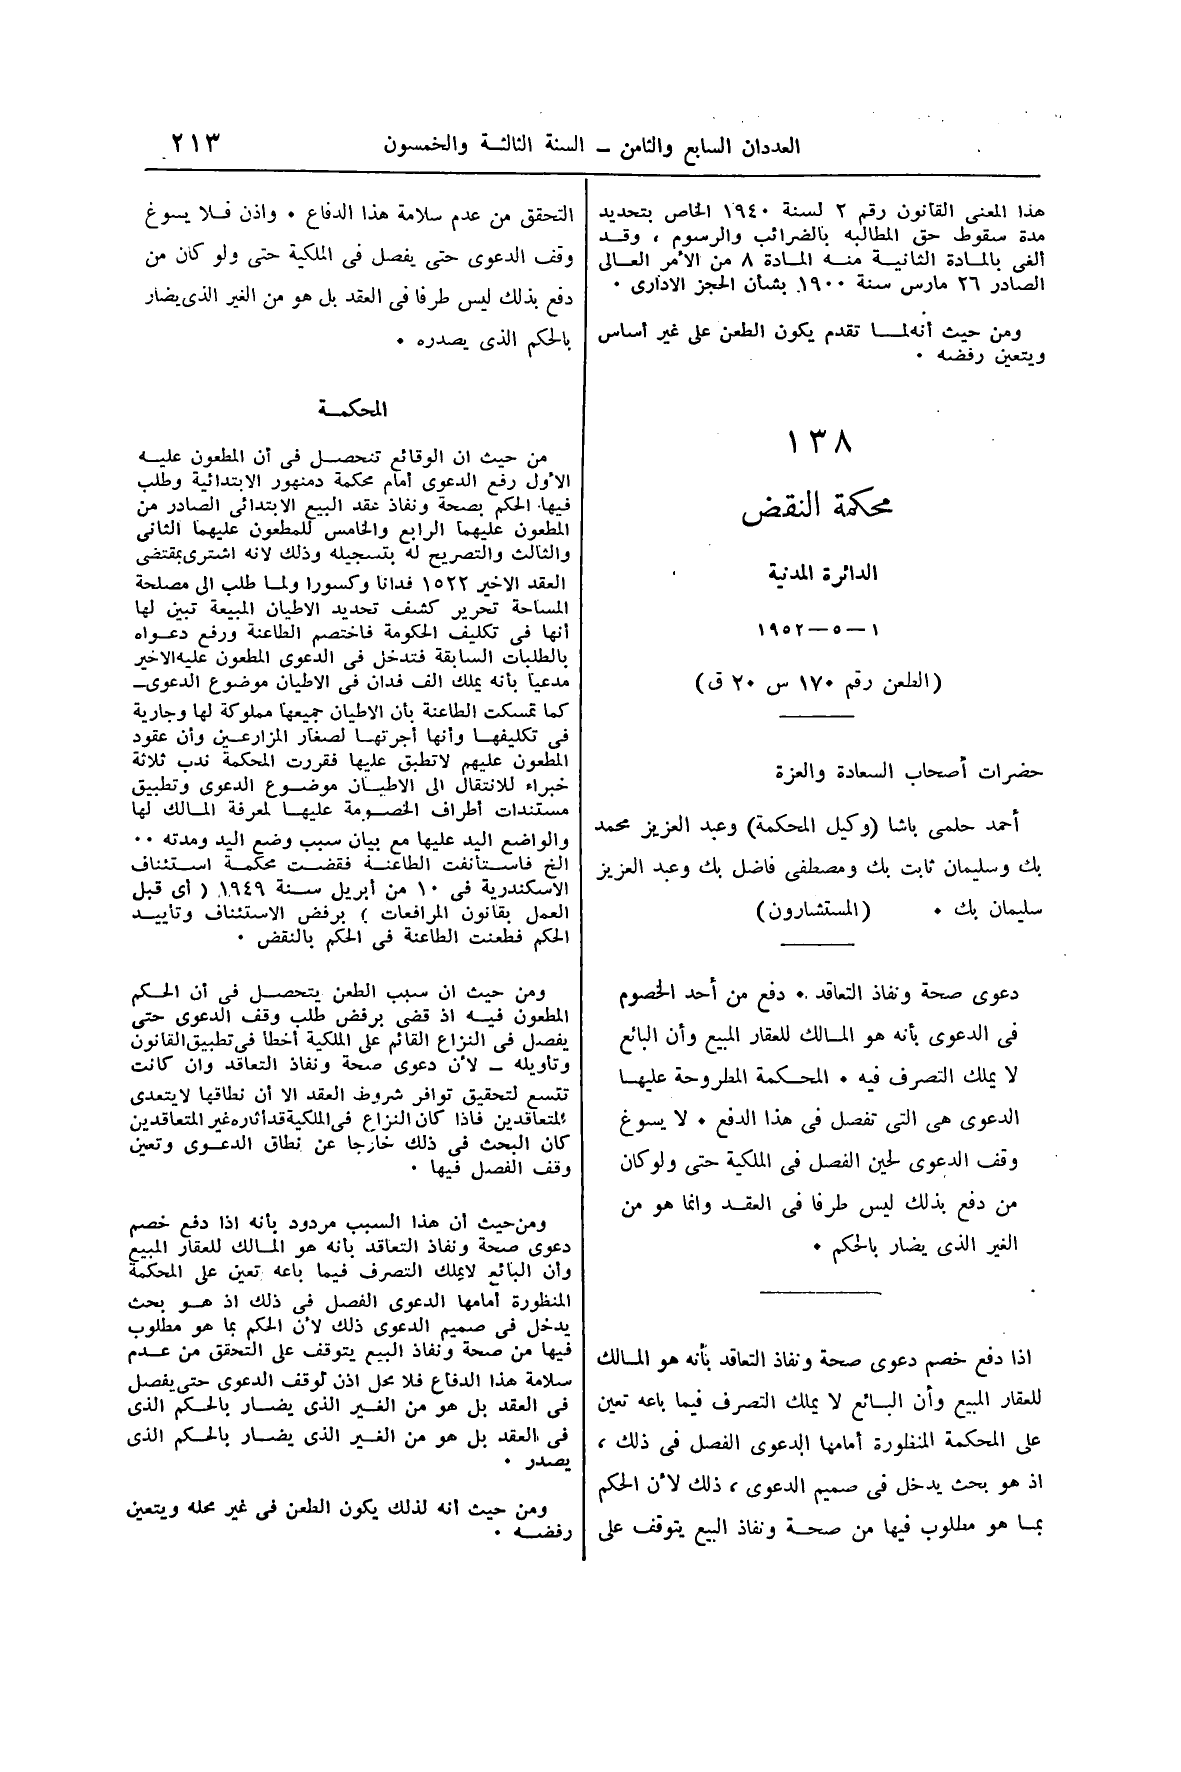 العددان السابع والثامن — السنة الثالثة والخمسون
٢١٣
هذا المعنى القانون رقم ٢ لسنة ١٩٤٠ الخاص بتحديد
مدة سقوط حق المطالبه بالضرائب والرسوم ، وقد
ألغى بالمادة الثانية منه المادة ٨ من الأمر العالى
الصادر ٢٦ مارس سنة ١٩٠٠ بشأن الحجز الادارى ٠
ومن حيث أنه لما تقدم يكون الطعن على غير أساس
ويتعين رفضه ٠
١٣٨
محكمة النقض
الدائرة المدنية
١ — ٥ — ١٩٥٢
(الطعن رقم ١٧٠ س ٢٠ ق)
حضرات أصحاب السعادة والعزة
أحمد حلمى باشا (وكيل المحكمة) وعبد العزيز محمد
بك وسليمان ثابت بك ومصطفى فاضل بك وعبد العزيز
سليمان بك ٠ (المستشارون)
دعوى صحة ونفاذ التعاقد ٠ دفع من أحد الخصوم
فى الدعوى بأنه هو المالك للعقار المبيع وأن البائع
لا يملك التصرف فيه ٠ المحكمة المطروحة عليها
الدعوى هى التى تفصل فى هذا الدفع ٠ لا يسوغ
وقف الدعوى لحين الفصل فى الملكية حتى ولو كان
من دفع بذلك ليس طرفا فى العقد وانما هو من
الغير الذى يضار بالحكم ٠
اذا دفع خصم دعوى صحة ونفاذ التعاقد بأنه هو المالك
للعقار المبيع وأن البائع لا يملك التصرف فيما باعه تعين
على المحكمة المنظورة أمامها الدعوى الفصل فى ذلك ،
اذ هو بحث يدخل فى صميم الدعوى ، ذلك لأن الحكم
بما هو مطلوب فيها من صحة ونفاذ البيع يتوقف على
التحقق من عدم سلامة هذا الدفاع ٠ واذن فلا يسوغ
وقف الدعوى حتى يفصل فى الملكية حتى ولو كان من
دفع بذلك ليس طرفا فى العقد بل هو من الغير الذى يضار
بالحكم الذى يصدره ٠
المحكمة
من حيث ان الوقائع تتحصل فى أن المطعون عليه
الأول رفع الدعوى أمام محكمة دمنهور الابتدائية وطلب
فيها الحكم بصحة ونفاذ عقد البيع الابتدائى الصادر من
المطعون عليهما الرابع والخامس للمطعون عليهما الثانى
والثالث والتصريح له بتسجيله وذلك لانه اشترى بمقتضى
العقد الاخير ١٥٢٢ فدانا وكسورا ولما طلب الى مصلحة
المساحة تحرير كشف تحديد الاطيان المبيعة تبين لها
أنها فى تكليف الحكومة فاختصم الطاعنة ورفع دعواه
بالطلبات السابقة فتدخل فى الدعوى المطعون عليه الاخير
مدعيا بأنه يملك الف فدان فى الاطيان موضوع الدعوى —
كما تمسكت الطاعنة بأن الاطيان جميعها مملوكة لها وجارية
فى تكليفها وأنها أجرتها لصغار المزارعين وأن عقود
المطعون عليهم لا تطبق عليها فقررت المحكمة ندب ثلاثة
خبراء للانتقال الى الاطيان موضوع الدعوى وتطبيق
مستندات أطراف الخصومة عليها لمعرفة المالك لها
والواضع اليد عليها مع بيان سبب وضع اليد ومدته ٠٠
الخ فاستأنفت الطاعنة فقضت محكمة استئناف
الاسكندرية فى ١٠ من أبريل سنة ١٩٤٩ ( أى قبل
العمل بقانون المرافعات ) برفض الاستئناف وتأييد
الحكم فطعنت الطاعنة فى الحكم بالنقض ٠
ومن حيث ان سبب الطعن يتحصل فى أن الحكم
المطعون فيه اذ قضى برفض طلب وقف الدعوى حتى
يفصل فى النزاع القائم على الملكية أخطأ فى تطبيق القانون
وتأويله — لأن دعوى صحة ونفاذ التعاقد وان كانت
تتسع لتحقيق توافر شروط العقد الا أن نطاقها لا يتعدى
المتعاقدين فاذا كان النزاع فى الملكية قد أثاره غير المتعاقدين
كان البحث فى ذلك خارجا عن نطاق الدعوى وتعين
وقف الفصل فيها ٠
ومن حيث أن هذا السبب مردود بأنه اذا دفع خصم
دعوى صحة ونفاذ التعاقد بأنه هو المالك للعقار المبيع
وأن البائع لايملك التصرف فيما باعه تعين على المحكمة
المنظورة أمامها الدعوى الفصل فى ذلك اذ هو بحث
يدخل فى صميم الدعوى ذلك لأن الحكم بما هو مطلوب
فيها من صحة ونفاذ البيع يتوقف على التحقق من عدم
سلامة هذا الدفاع فلا محل اذن لوقف الدعوى حتى يفصل
فى العقد بل هو من الغير الذى يضار بالحكم الذى
فى العقد بل هو من الغير الذى يضار بالحكم الذى
يصدر ٠
ومن حيث أنه لذلك يكون الطعن فى غير محله ويتعين
رفضه ٠